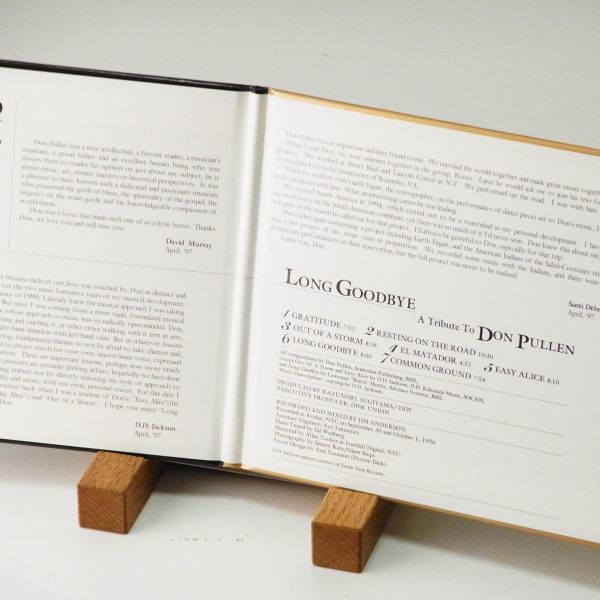 Don Pullen was a true intellectual, a fervent reader, a musician's
musician, a good father and an excellent human being who was
always there to render his opinion on just about any subject, be it
about music, art, money matters or historical perspectives. It was
a pleasure to have known such a dedicated and passionate musician
who possessed the garth of blues, the spirituality of the gospel, the
urgence of the avant garde and the knowledgeable compassion of
world music.
Don was a force that made each one of us a little better. Thanks
Don, we love you and will miss you.
David Murray
April, '97
because each of our lives was touched by Don in distinct and
for the two most formative years of my musical development.
mer of 1990, I already knew the musical approach I was taking
But since I was coming from a more rigid, formalized musical
whose approach to music was so radically open-minded. Don,
and cajoling it, at other times walking with it arm in arm,
ght-hand abandon with left-hand calm. But in whatever lessons
ring, fundamental themes to not be afraid to take chances and,
always search for your own, sincere inner voice, expressed
tion. These are important lessons, perhaps now more timely
process are certainly lifelong affairs, hopefully we have done
ing tribute not by directly imitating his style or approach to
life and music, with our own, personal voices. For this date I
written back when I was a student of Don's: "Easy Alice"(the
ig, Alice"), and "Out of a Storm". I hope you enjoy "Long
Don.
D.D. Jackson
April, '97
Don Pullen was an important and dear friend to me. We traveled the world together and made great music together
When I met Don, we were sidemen together in the group, Roots. Later he would ask me to join his trio for
projects. We worked at Sweet Basil and Lincoln Center in N.Y. We performed on the road. I was with him
received the key to his hometown of Roanoke, VA.
When we worked with Garth Fagan, the choreographer, on the performance of dance pieces set to Don's music, I
collaborated with him. What an interesting career he was leading.
We toured South America in 1994, which turned out to be a watershed in my personal development. I ha
musical roots on the South American continent, yet there was so much of it I'd never seen. Don knew this about me
part of the reason he called me for that project. I'll always be grateful to Don, especially for that trip.
Don called upon me concerning a project including Garth Fagan, and the American Indians of the Salish-Kootenay tri
was a pet project of his, some years in preparation. We recorded some music with the Indians, and there were
preliminary performances on their reservation, but the full project was never to be realized.
I miss you, Don.
Santi Debr
April, '97
LONG GOODBYE
A Tribute To DON PULLEN
1 GRATITUDE 7:52 2 RESTING ON THE ROAD 10:30
3 OUT OF A STORM 8:38 4 EL MATADOR 4:32 5 EASY ALICE 8:10
6 LONG GOODBYE 8:00 7 COMMON GROUND 7:54
All compositions by Don Pullen, Andredon Publishing, BMI,
except Out Of A Storm and Easy Alice by D.D. Jackson, D.D. Kabukala Music, SOCAN,
and Long Goodbye by Lawrence "Butch" Morris, Advance Systems, BMI.
Music transcription copying by D.D. Jackson.
PRODUCED BY KAZUNORI SUGIYAMA/DIW
EXECUTIVE PRODUCER: DISK UNION
RECORDED AND MIXED BY JIM ANDERSON
Recorded at Avatar, NYC on September 30 and October 1, 1996
Assistant Engineer: Aya Takemura
Piano Tuned by Ed Wedberg
Mastered by Allan Tucker at Foothill Digital, NYC
Photography by Jimmy Katz/Giant Steps
Cover Design by Arai Yasunori (Picture Disk)
D.D. Jackson appears courtesy of Justin Time Records.